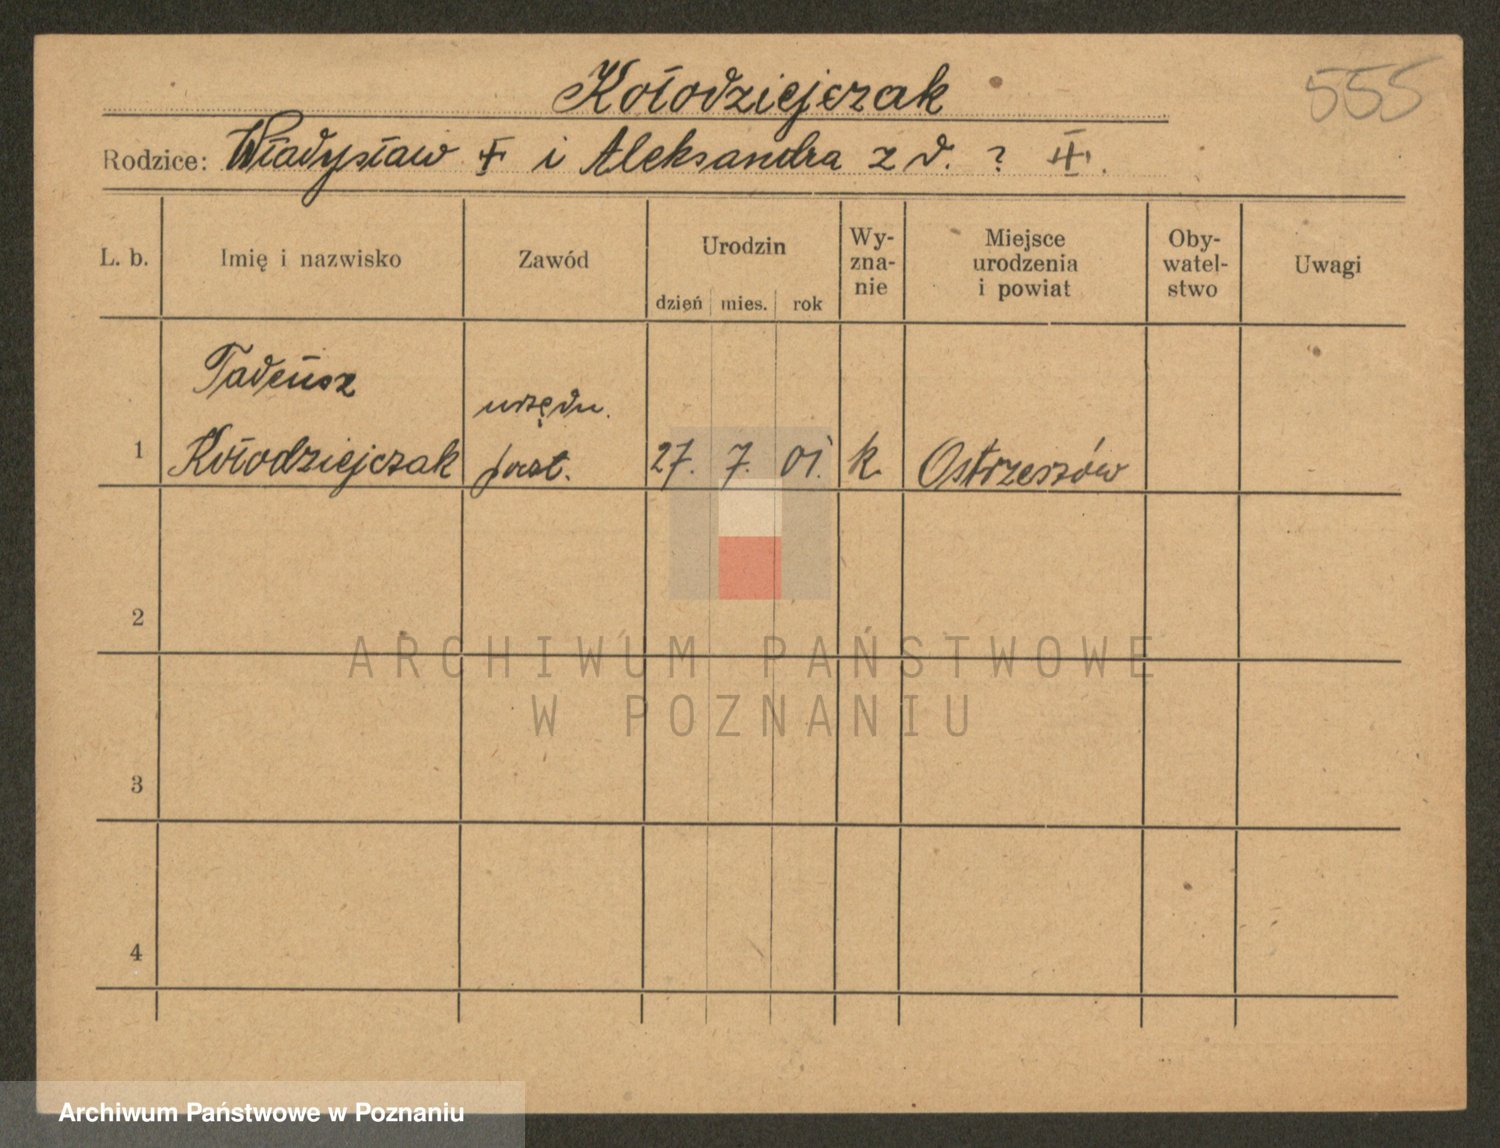 Kołodziejczak
555
Rodzice: Władysław ✝ i Aleksandra z d. ? ✝.
L. b.
Imię i nazwisko
Zawód
Urodzin
dzień mies. rok
Wy-
zna-
nie
Miejsce
urodzenia
i powiat
Oby-
watel-
stwo
Uwagi
Tadeusz
urzędn.
1 Kołodziejczak 27. 7. 01. k. Ostrzeszów
2
3
4
ARCHIWUM PAŃSTWOWE
W POZNANIU
Archiwum Państwowe w Poznaniu